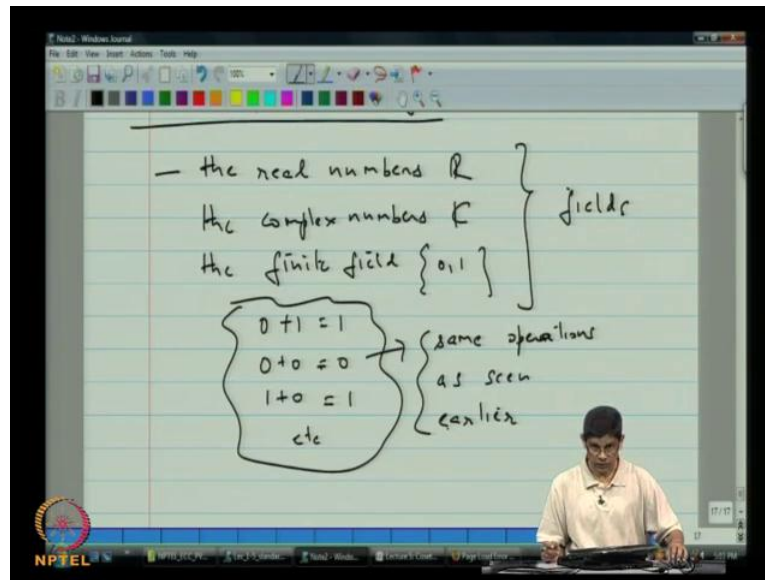 Note2 - Windows Journal
File Edit View Insert Actions Tools Help
100%
B I
— the real numbers ℝ
the complex numbers ℂ
the finite field {0,1}
} fields
0 + 1 = 1
0 + 0 = 0
1 + 0 = 1
etc
→ { same operations
as seen
earlier
17/17
17
NPTEL
Note2 - Windo...
5:03 PM